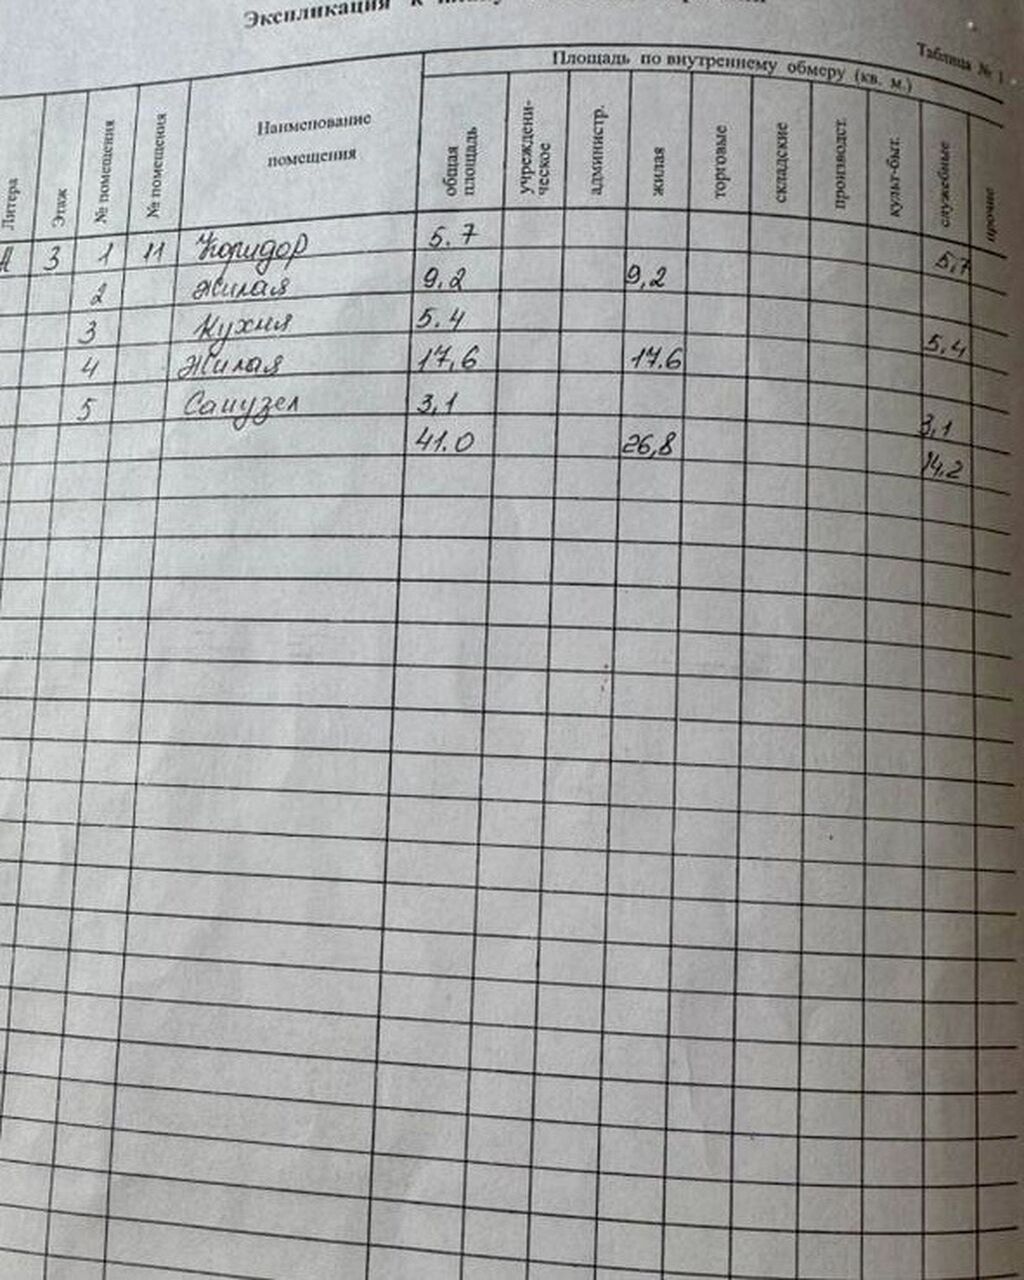 Экспликация к
Таблица № 1
Литера Этаж № помещения № помещения Наименование помещения Площадь по внутреннему обмеру (кв. м.)
общая площадь учрежденическое администр. жилая торговые складские производст. культ-быт. служебные прочие
А 3 1 11 Коридор 5.7 5,7
2 Жилая 9,2 9,2
3 Кухня 5.4 5,4
4 Жилая 17,6 17.6
5 Санузел 3,1 3,1
41.0 26,8 14,2